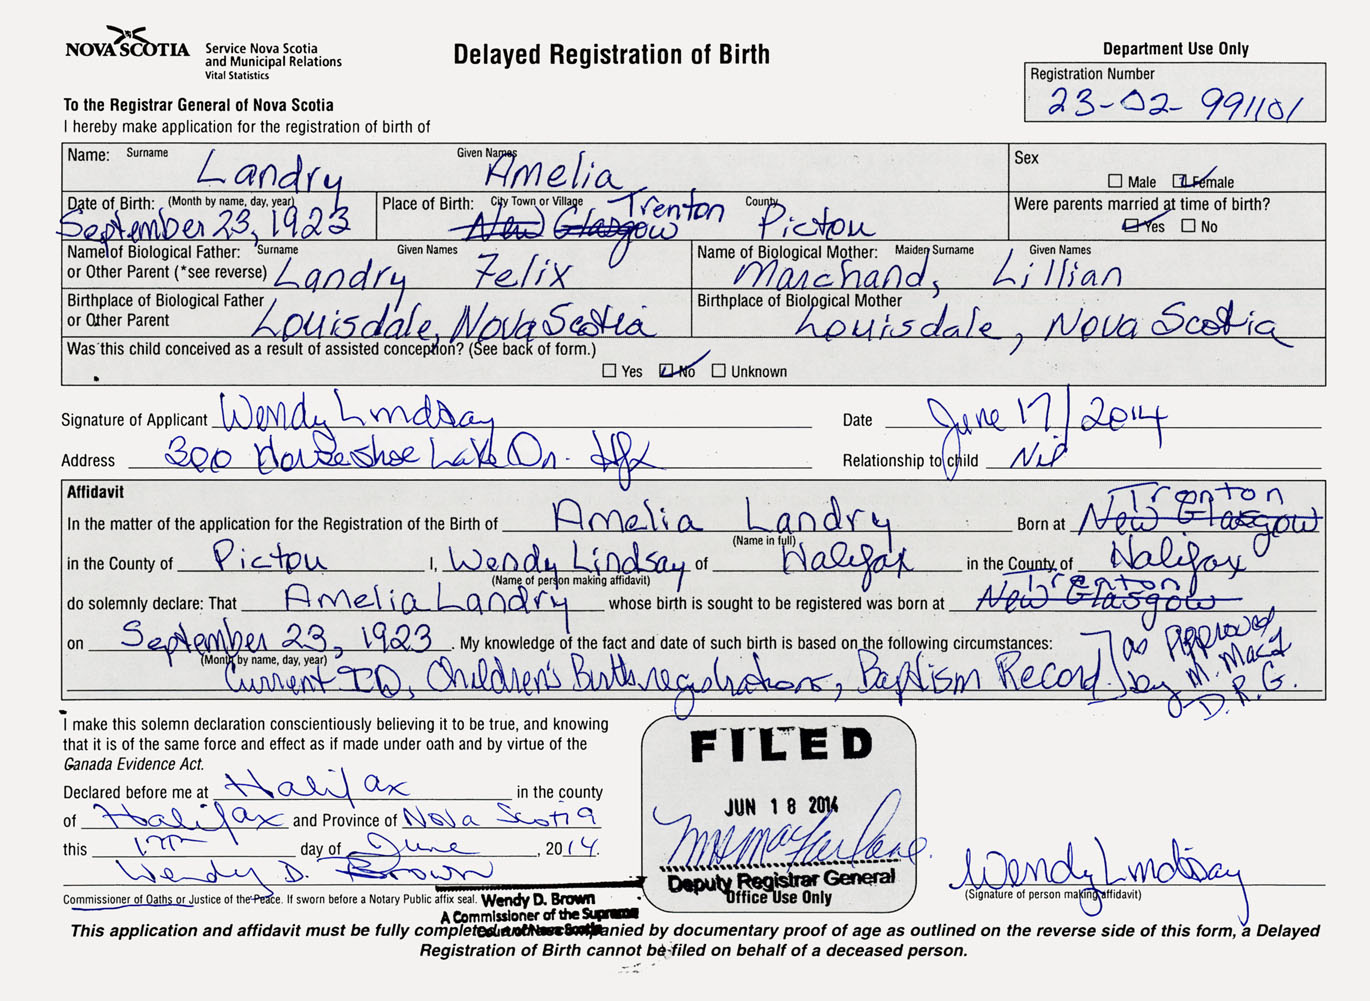 NOVA SCOTIA
Service Nova Scotia
and Municipal Relations
Vital Statistics
Delayed Registration of Birth
Department Use Only
Registration Number
23-02-991101
To the Registrar General of Nova Scotia
I hereby make application for the registration of birth of
Name: Surname Landry Given Names Amelia
Sex
Male Female
Date of Birth: (Month by name, day, year) September 23, 1923
Place of Birth: City Town or Village New Glasgow Trenton County Pictou
Were parents married at time of birth?
Yes No
Name of Biological Father: Surname Given Names
or Other Parent (*see reverse) Landry Felix
Name of Biological Mother: Maiden Surname Given Names
Marchand, Lillian
Birthplace of Biological Father
or Other Parent Louisdale, Nova Scotia
Birthplace of Biological Mother
Louisdale, Nova Scotia
Was this child conceived as a result of assisted conception? (See back of form.)
Yes No Unknown
Signature of Applicant Wendy Lindsay
Date June 17/2014
Address 300 Horseshoe Lake Dr. Hfx
Relationship to child Nil
Affidavit
Trenton
In the matter of the application for the Registration of the Birth of Amelia Landry Born at New Glasgow
(Name in full)
in the County of Pictou I, Wendy Lindsay of Halifax in the County of Halifax
(Name of person making affidavit)
Trenton
do solemnly declare: That Amelia Landry whose birth is sought to be registered was born at New Glasgow
on September 23, 1923. My knowledge of the fact and date of such birth is based on the following circumstances:
(Month by name, day, year)
Current ID, Children's Births registrations, Baptism Record.
as Approved
by M. Mac
D.R.G.
I make this solemn declaration conscientiously believing it to be true, and knowing
that it is of the same force and effect as if made under oath and by virtue of the
Canada Evidence Act.
Declared before me at Halifax in the county
of Halifax and Province of Nova Scotia
this 17th day of June, 2014.
Wendy D. Brown
Commissioner of Oaths or Justice of the Peace. If sworn before a Notary Public affix seal.
Wendy D. Brown
A Commissioner of the Supreme
Court of Nova Scotia
FILED
JUN 18 2014
Deputy Registrar General
Office Use Only
Wendy Lindsay
(Signature of person making affidavit)
This application and affidavit must be fully completed accompanied by documentary proof of age as outlined on the reverse side of this form, a Delayed
Registration of Birth cannot be filed on behalf of a deceased person.